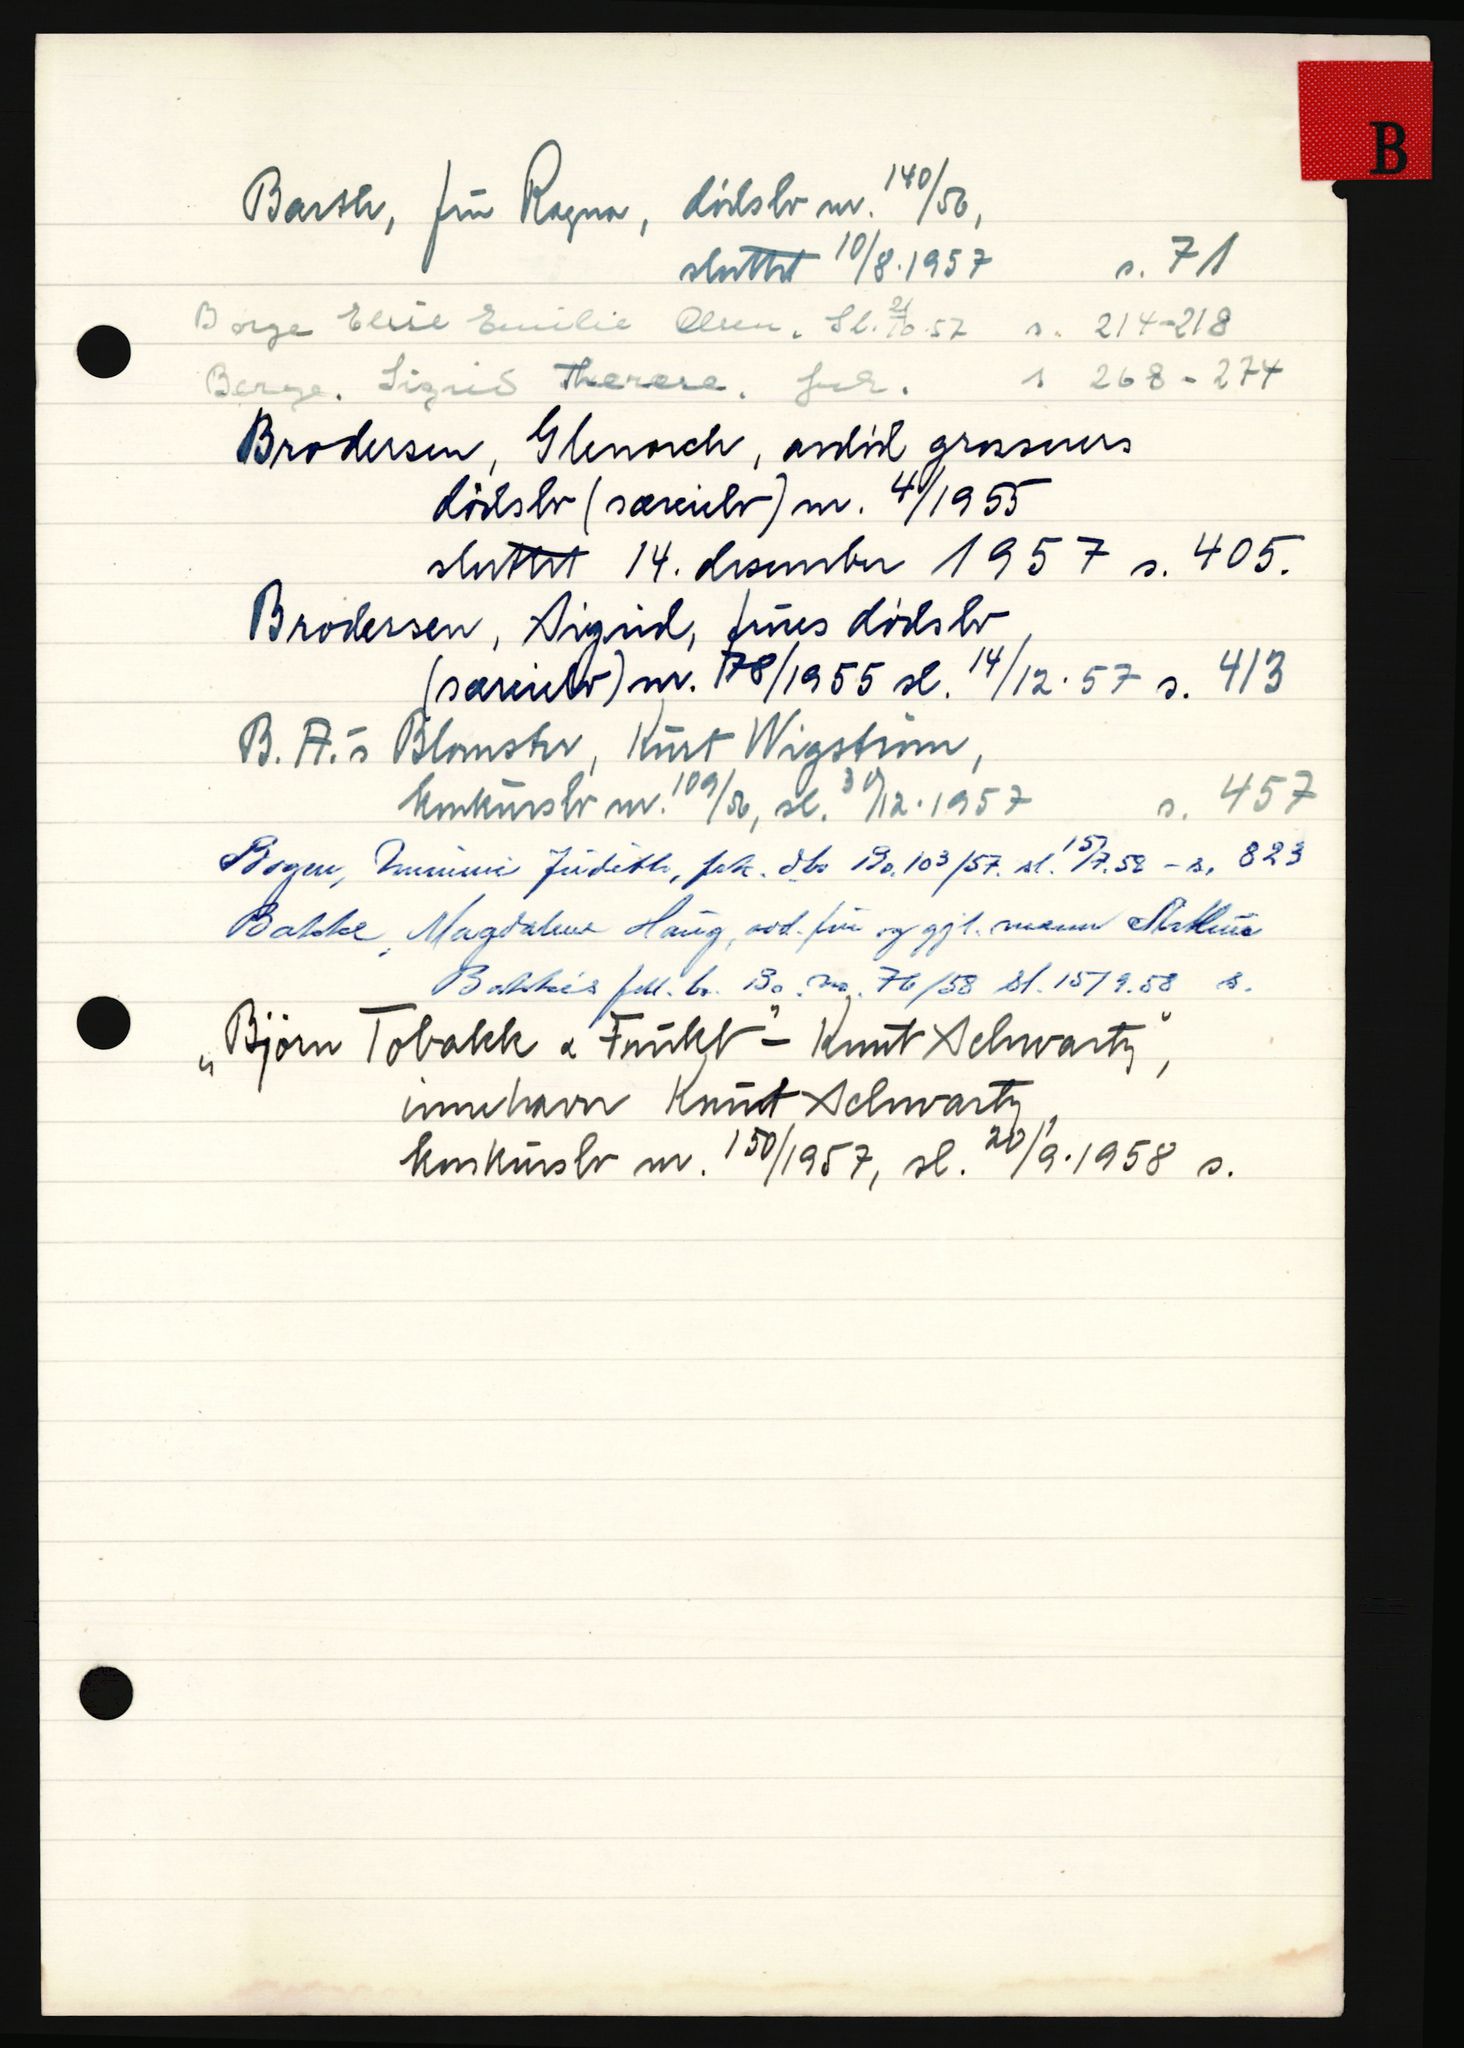 B
Barth, fru Ragna, dødsbo nr. 140/56,
sluttet 10/8.1957 s. 71
Borge Elise Emilie Olsen. Sl. 21/10.57 s. 214-218
Berge. Sigrid Therese. frk. s 268-274
Brodersen, Glenorch, avdød grosserers
dødsbo (særeiebo) nr. 4/1955
sluttet 14. desember 1957 s. 405.
Brodersen, Sigrid, frues dødsbo
(særeiebo) nr. 178/1955 sl. 14/12.57 s. 413
B.A.'s Blomster, Kurt Wigstrøm,
konkursbo nr. 109/56, sl. 30/12.1957 s. 457
Bogen, Judith, frk. dbo Bo. 103/57. sl. 15/7.58 - s. 823
Bakke, Magdalene Haug, avd. fru og gjl. mann
Bakkes fell. bo. Bo. no. 76/58 sl. 15/9.58 s.
"Bjørn Tobakk & Frukt" - Knut Schwartz",
innehaver Knut Schwartz,
konkursbo nr. 150/1957, sl. 20/9.1958 s.